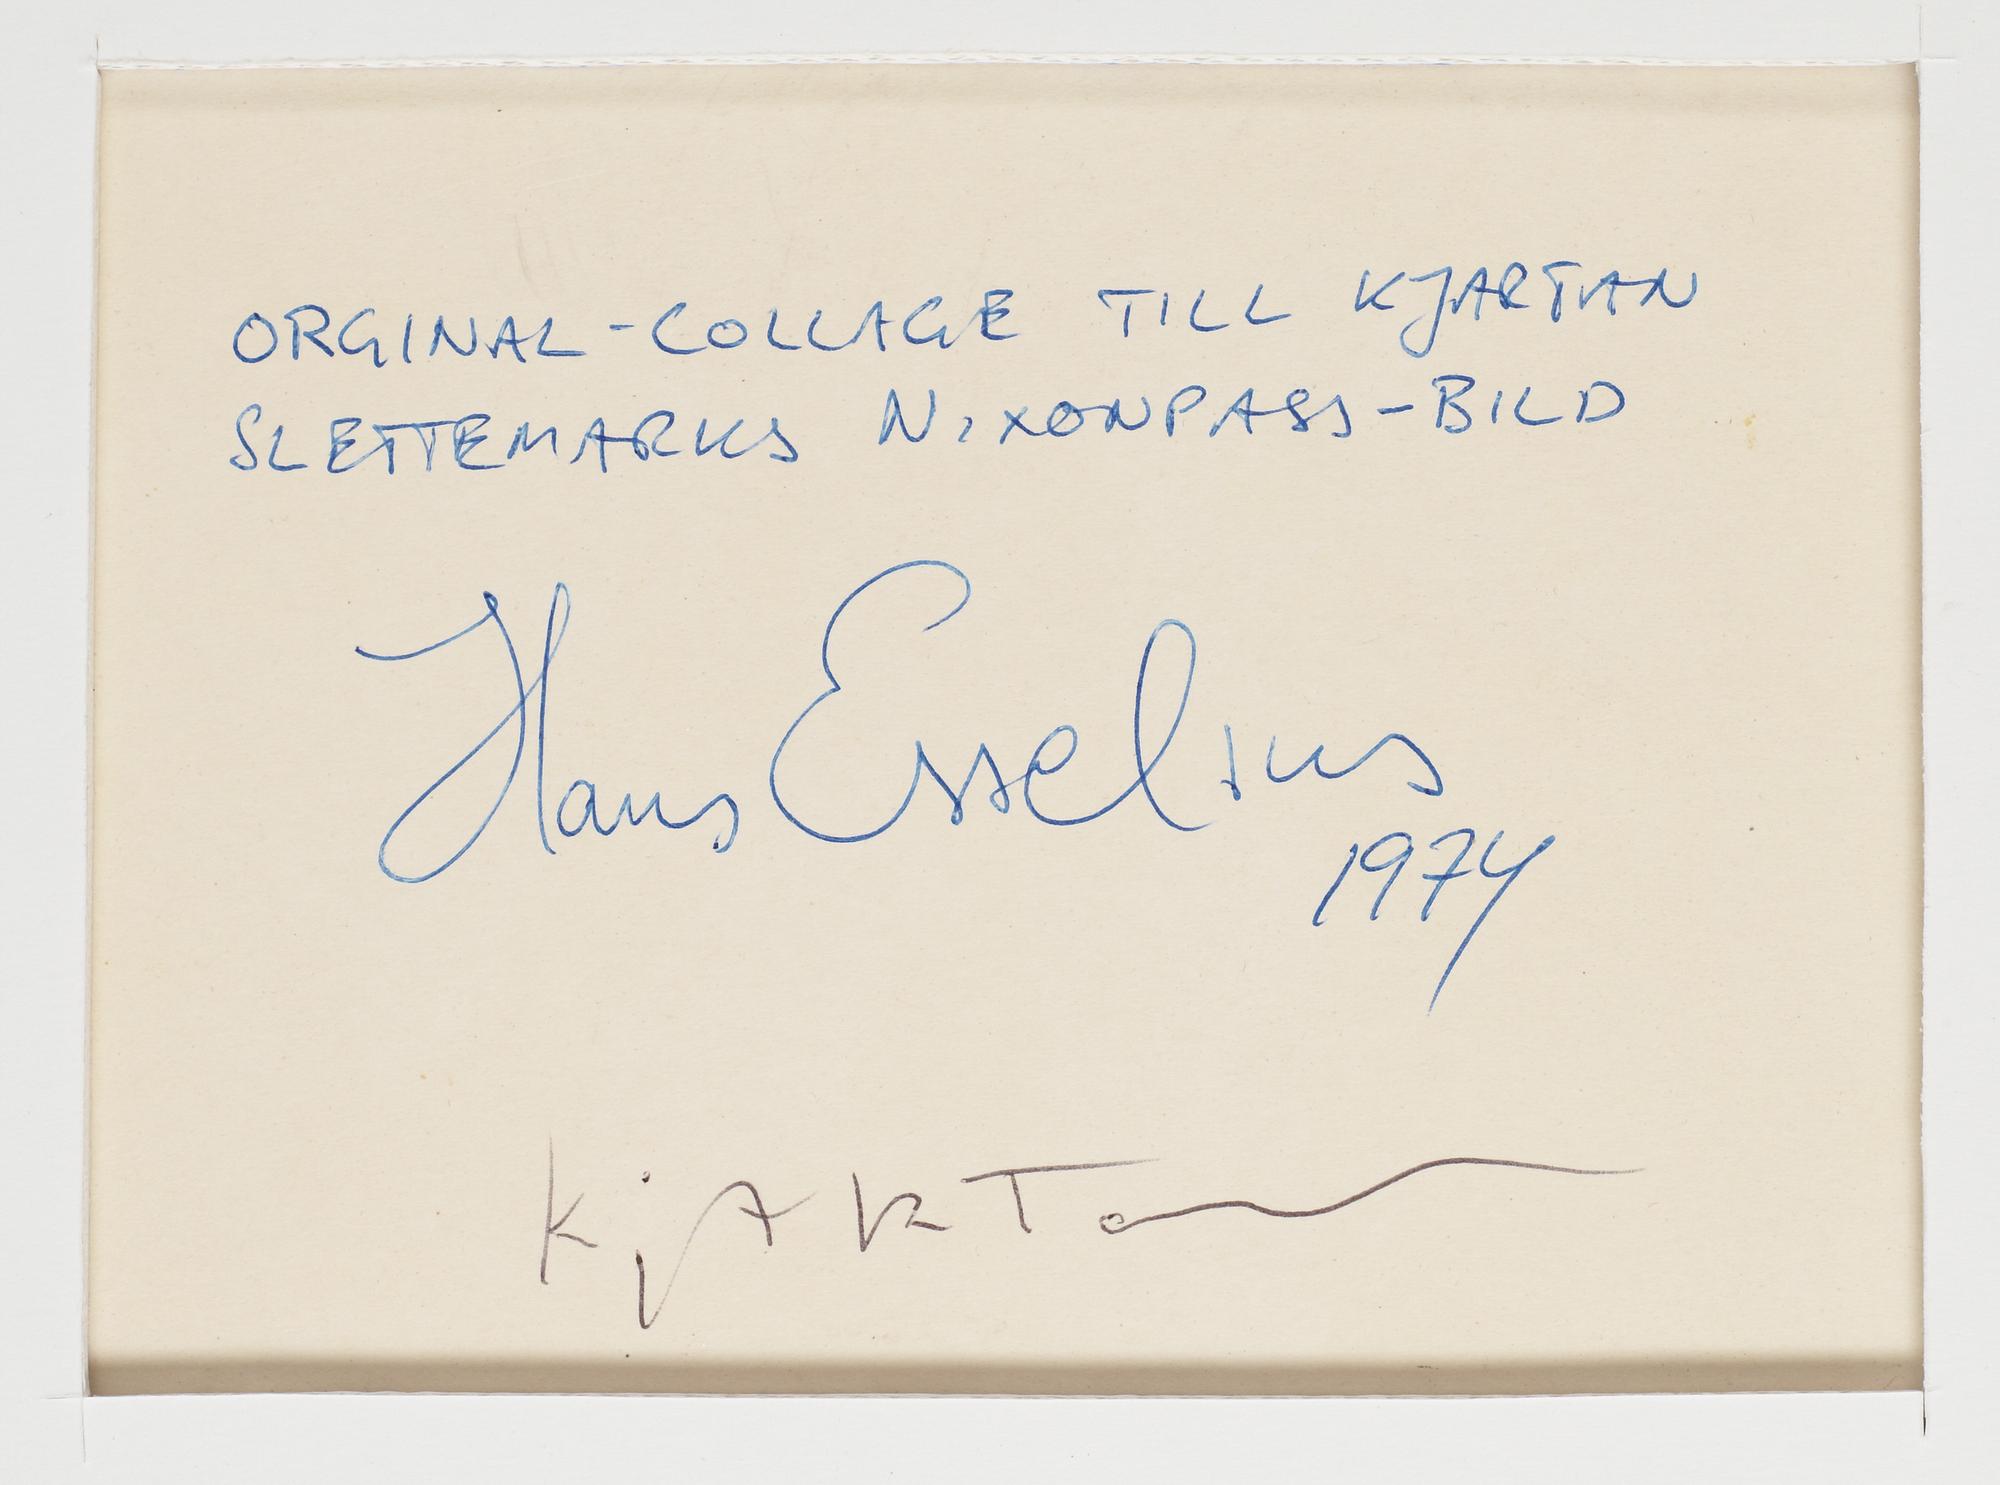 ORGINAL-COLLAGE TILL KJARTAN
SLETTEMARKS NIXONPASS-BILD
Hans Esselius
1974
KjARTan